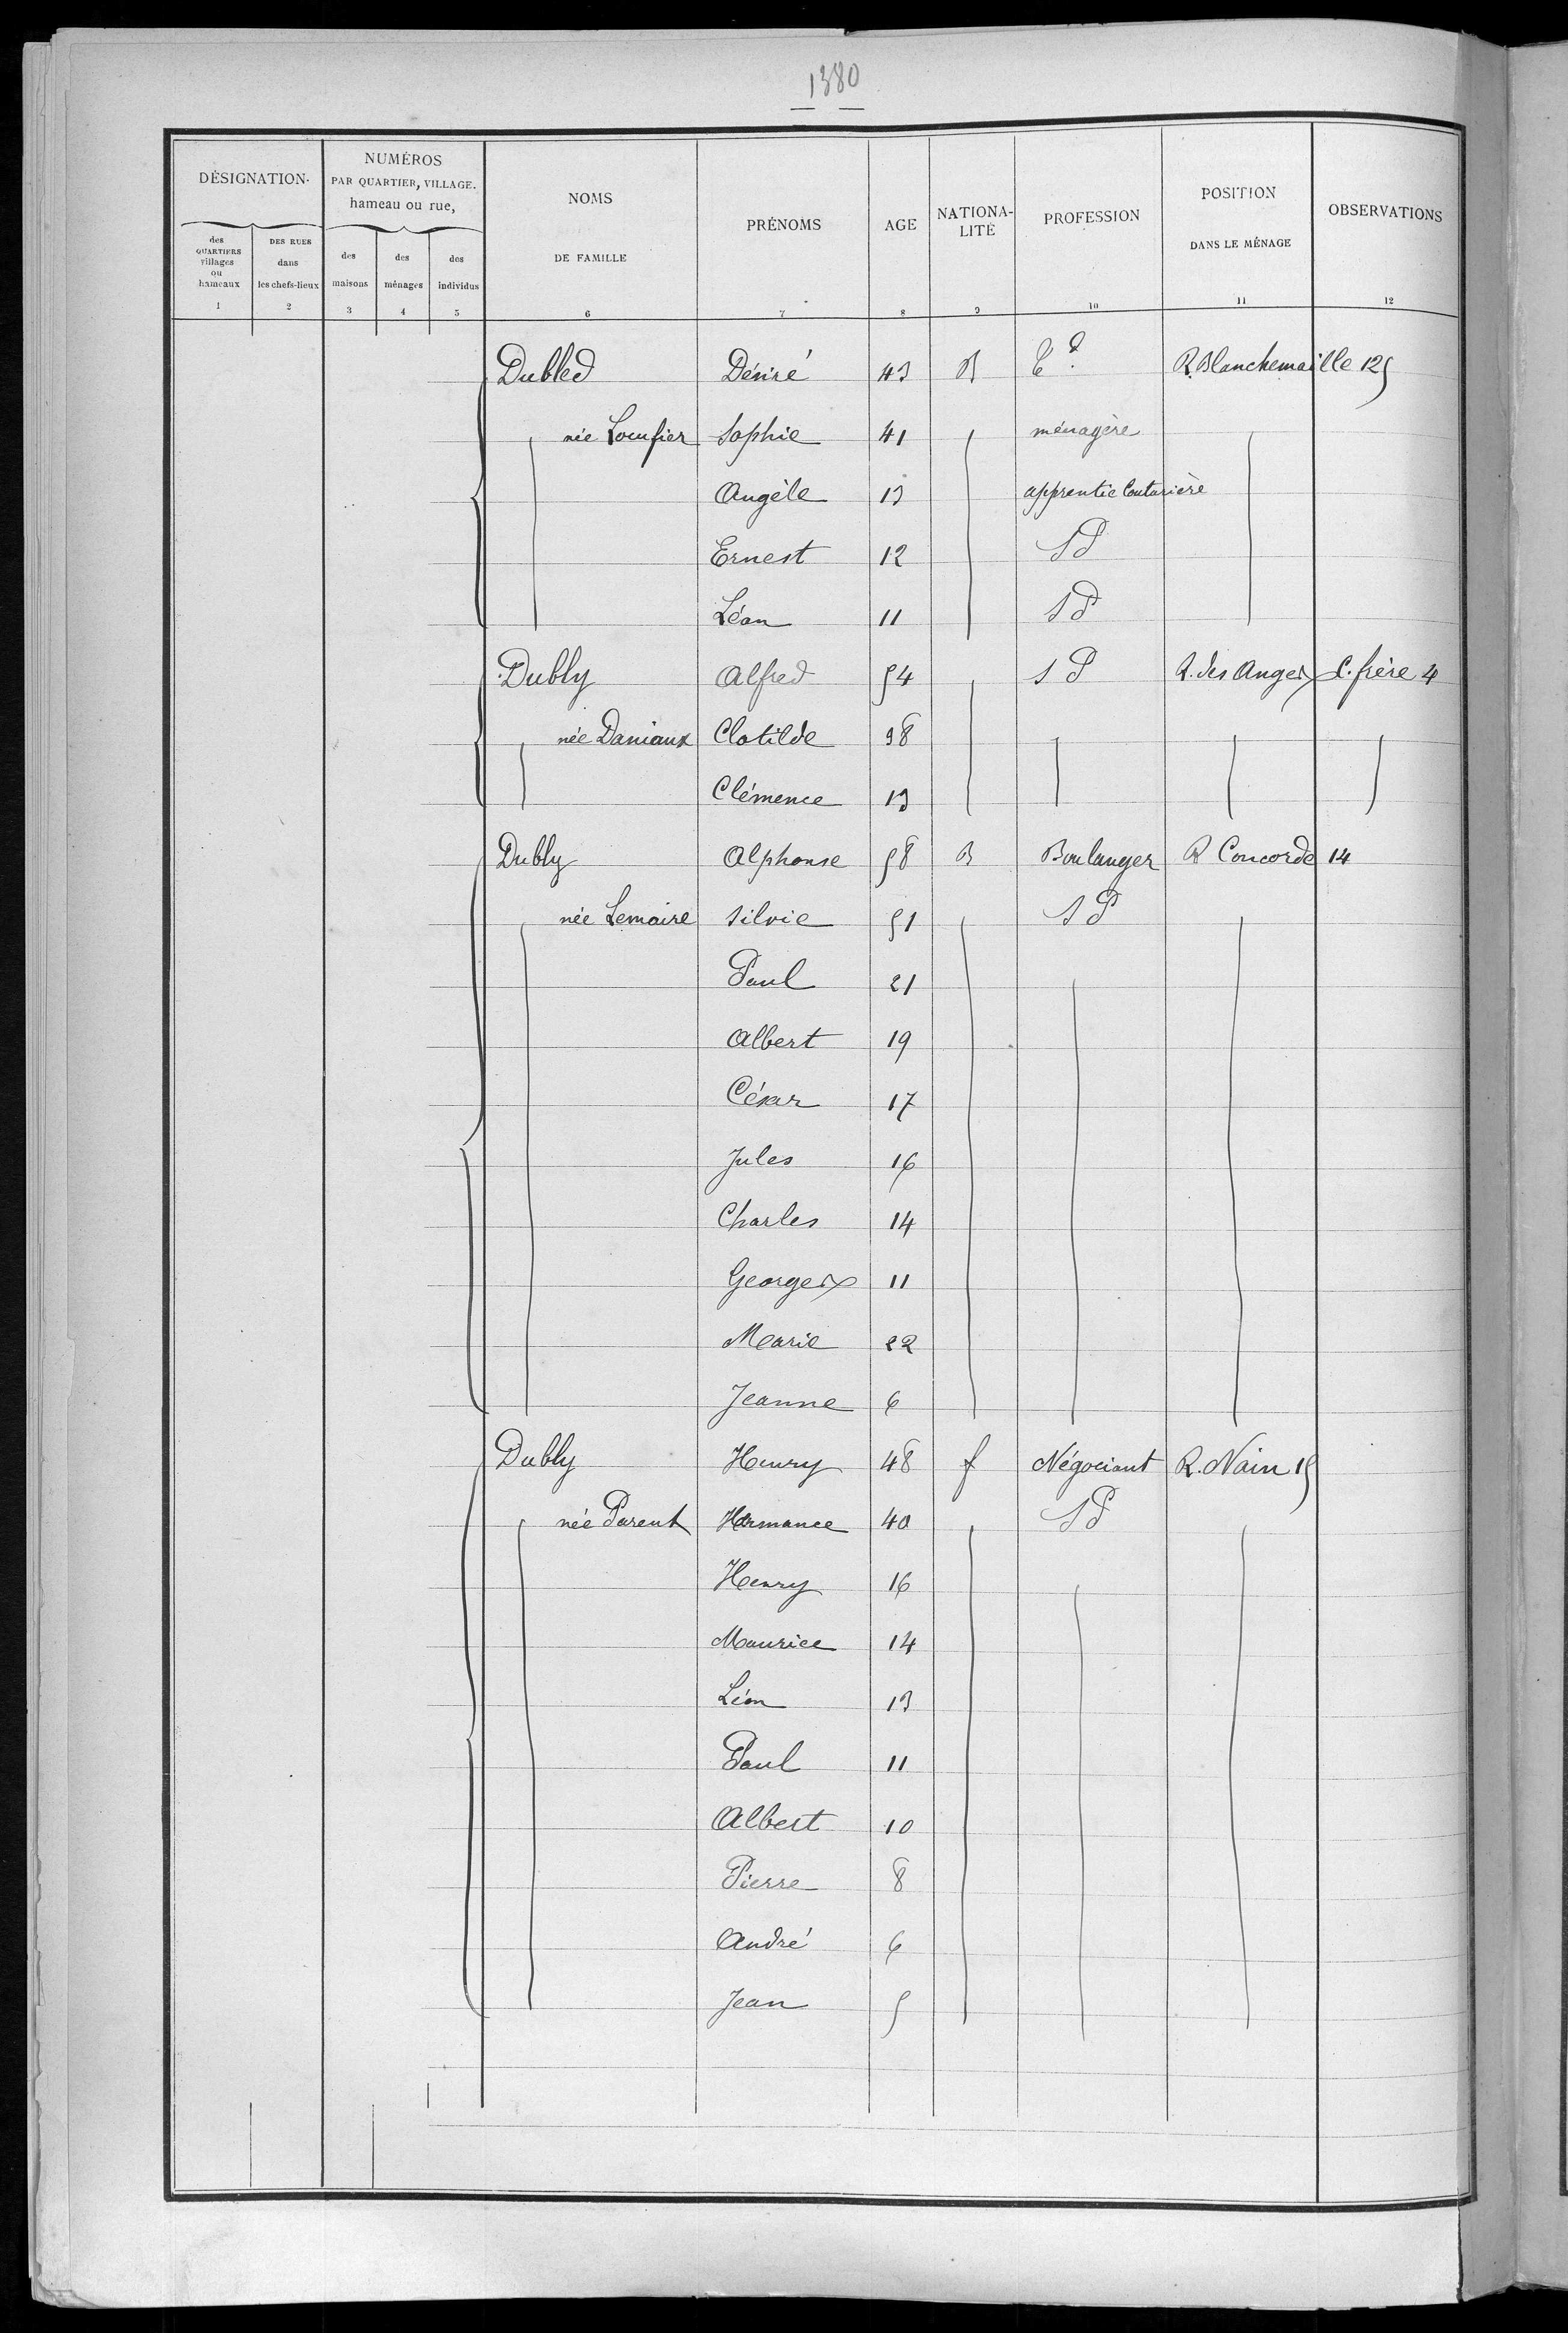 1380
DÉSIGNATION.
NUMÉROS
PAR QUARTIER, VILLAGE.
hameau ou rue,
NOMS
DE FAMILLE
PRÉNOMS
AGE
NATIONA-
LITÉ
PROFESSION
POSITION
DANS LE MÉNAGE
OBSERVATIONS
des
QUARTIERS
villages
ou
hameaux
DES RUES
dans
les chefs-lieux
des
maisons
des
ménages
des
individus
1 2 3 4 5 6 7 8 9 10 11 12
Dubled Désiré 43 B Td R. Blanchemaille 125
née Sophie 41 ménagère
Angèle 13 apprentie Couturière
Ernest 12 SP
Léon 11 SP
Dubly Alfred 54 SP R. des Anges C. frère 4
née Daniaux Clotilde 38
Clémence 13
Dubly Alphonse 58 B Boulanger R Concorde 14
née Lemaire Silvie 51 SP
Paul 21
Albert 19
César 17
Jules 16
Charles 14
Georges 11
Marie 22
Jeanne 6
Dubly Henry 48 f Négociant R. Nain 15
née Parent Hermance 40 SP
Henry 16
Maurice 14
Léon 13
Paul 11
Albert 10
Pierre 8
André 6
Jean 5